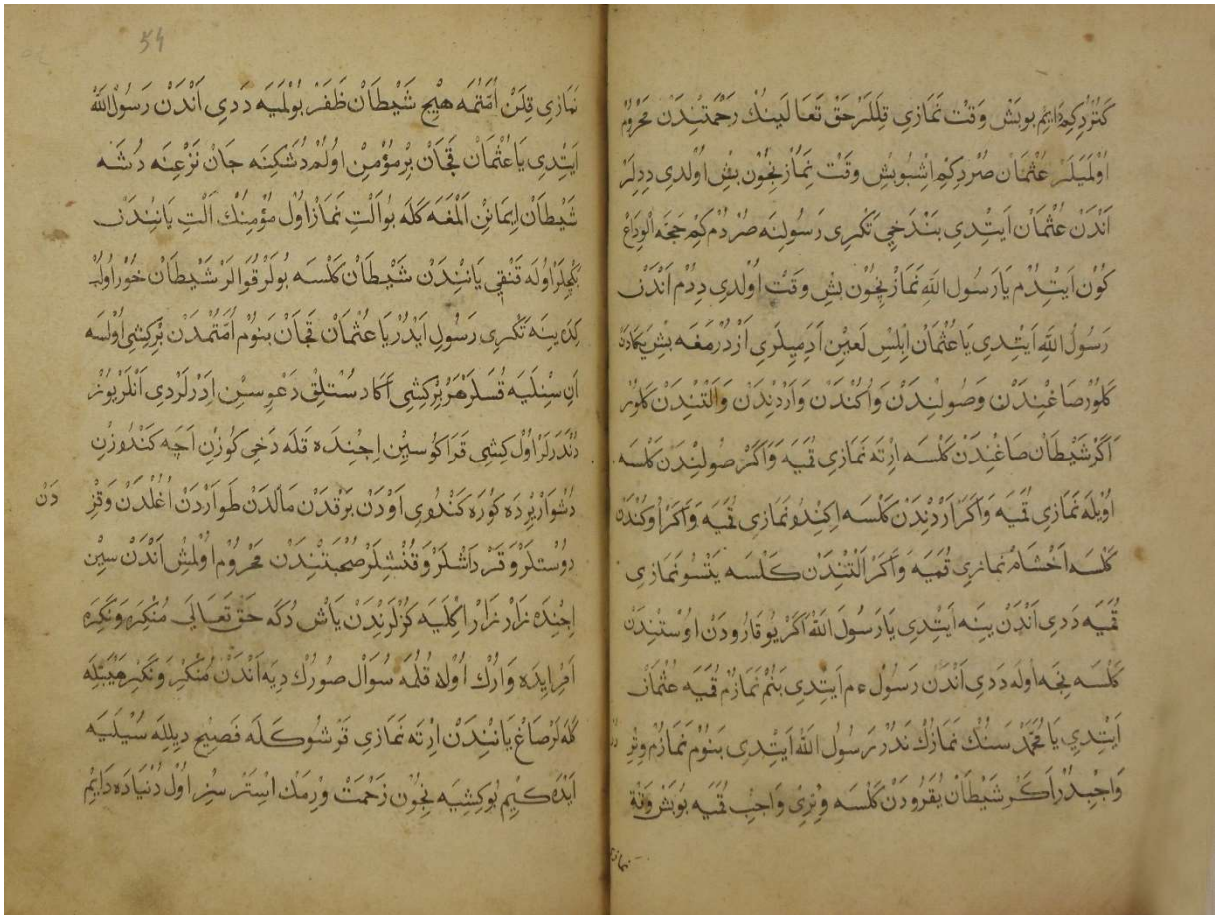 كتوردكم دايم بو بش وقت نمازي قللر حق تعالينك رحمتندن محروم
اولميلر عثمان صردكم اشبو بش وقت نماز نچون بش اولدي ددلر
اندن عثمان ايتدي بندخي تكري رسولنه صردم كم حجة الوداع
كون ايتدم يا رسول الله نماز نچون بش وقت اولدي ددم اندن
رسول الله ايتدي يا عثمان ابلس لعين ادميلري ازدرمغه بش ياندن
كلور صاغندن وصولندن واكندن واردندن والتندن كلور
اكر شيطان صاغندن كلسه ارته نمازي قميه واكر صولندن كلسه
اويله نمازي قميه واكر اردندن كلسه اكندو نمازي قميه واكر اوكندن
كلسه اخشام نمازي قميه واكر التندن كلسه يتسو نمازي
قميه ددي اندن ينه ايتدي يا رسول الله اكر يوقارودن اوستندن
كلسه نجه اوله ددي اندن رسول ءم ايتدي بنم نمازم قميه عثمان
ايتدي يا محمد سنك نمازك ندر رسول الله ايتدي بنوم نمازم وتر
واجبدر اكر شيطان يقرودن كلسه وتري واجب قميه بو بش وقت
نمازي
54
نمازي قلن امتمه هيچ شيطان ظفر بولميه ددي اندن رسول الله
ايتدي يا عثمان قچان بر مؤمن اولم دشكنه جان نزعنه دشه
شيطان ايمانن المغه كله بو الت نماز اول مؤمنك الت ياننندن
بكجلر اوله قنقي ياننندن شيطان كلسه بولر قوالر شيطان خور اولب
كده ينه تكري رسول ايدر يا عثمان قچان بنوم امتمدن بر كشي اولسه
ان سنليه قسلر هر بر كشي اكا دستلق دعوسين ادرلردي انلر يوز
دندرلر اول كشي قراكو سين اچنده قله دخي كوزن اچه كندوزن
دشوار يرده كوره كندوي اودن برقدن مالدن طواردن اغلدن وقز
دن
دوستلر وقرداشلر وقنشلر صحبتندن محروم اولمش اندن سين
اچنده زار زار اكليه كزلرندن ياش دكه حق تعالى منكره ونكره
امر ايده وارك اول قلمه سوال صورك ديه اندن منكر ونكير هيبتله
كله لر صاغ ياننندن ارته نمازي قرشو كله فصيح ديلله سيليه
ايده كيم بو كشيه نچون زحمت ورمك استرسز اول دنياده دايم